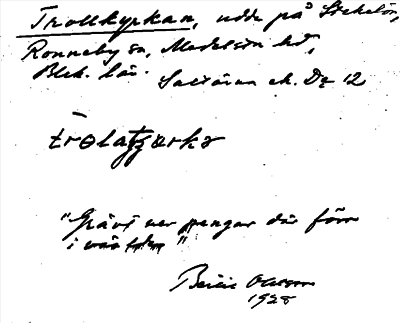 Trollkyrkan, udde på Stekelön,
Ronneby sn, Medelsta hd,
Blek. län. Saxärven ek. De 12
trolatjyrka
"Grävt ner pengar där förr
i världen"
Beiric Olsson
1928